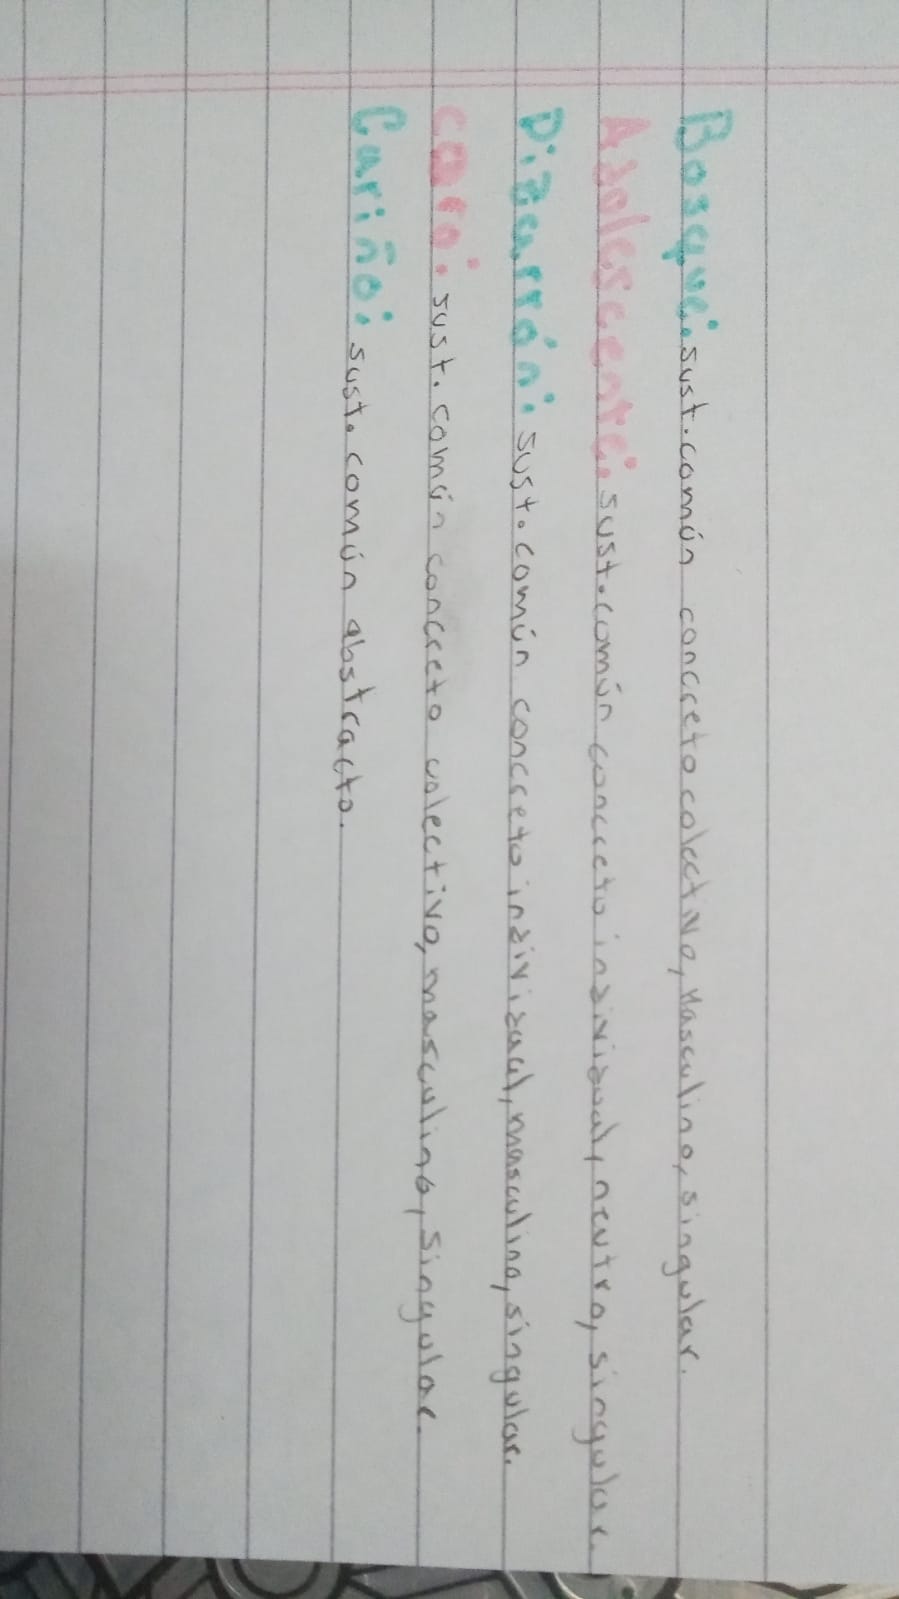 Bosque: sust. común concreto colectivo, Masculino, singular.
Adolescente: sust. común concreto individual, neutro, singular.
Pizarrón: sust. común concreto individual, masculino, singular.
Coro: sust. común concreto colectivo, masculino, singular.
Cariño: sust. común abstracto.